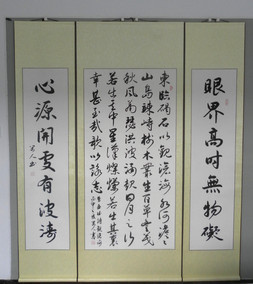 眼界高时無物礙
東臨碣石以觀滄海水何澹々
山島竦峙樹木叢生百草豐茂
秋風蕭瑟洪波湧起日月之行
若出其中星漢燦爛若出其裏
幸甚至哉歌以詠志
心源開處有波濤